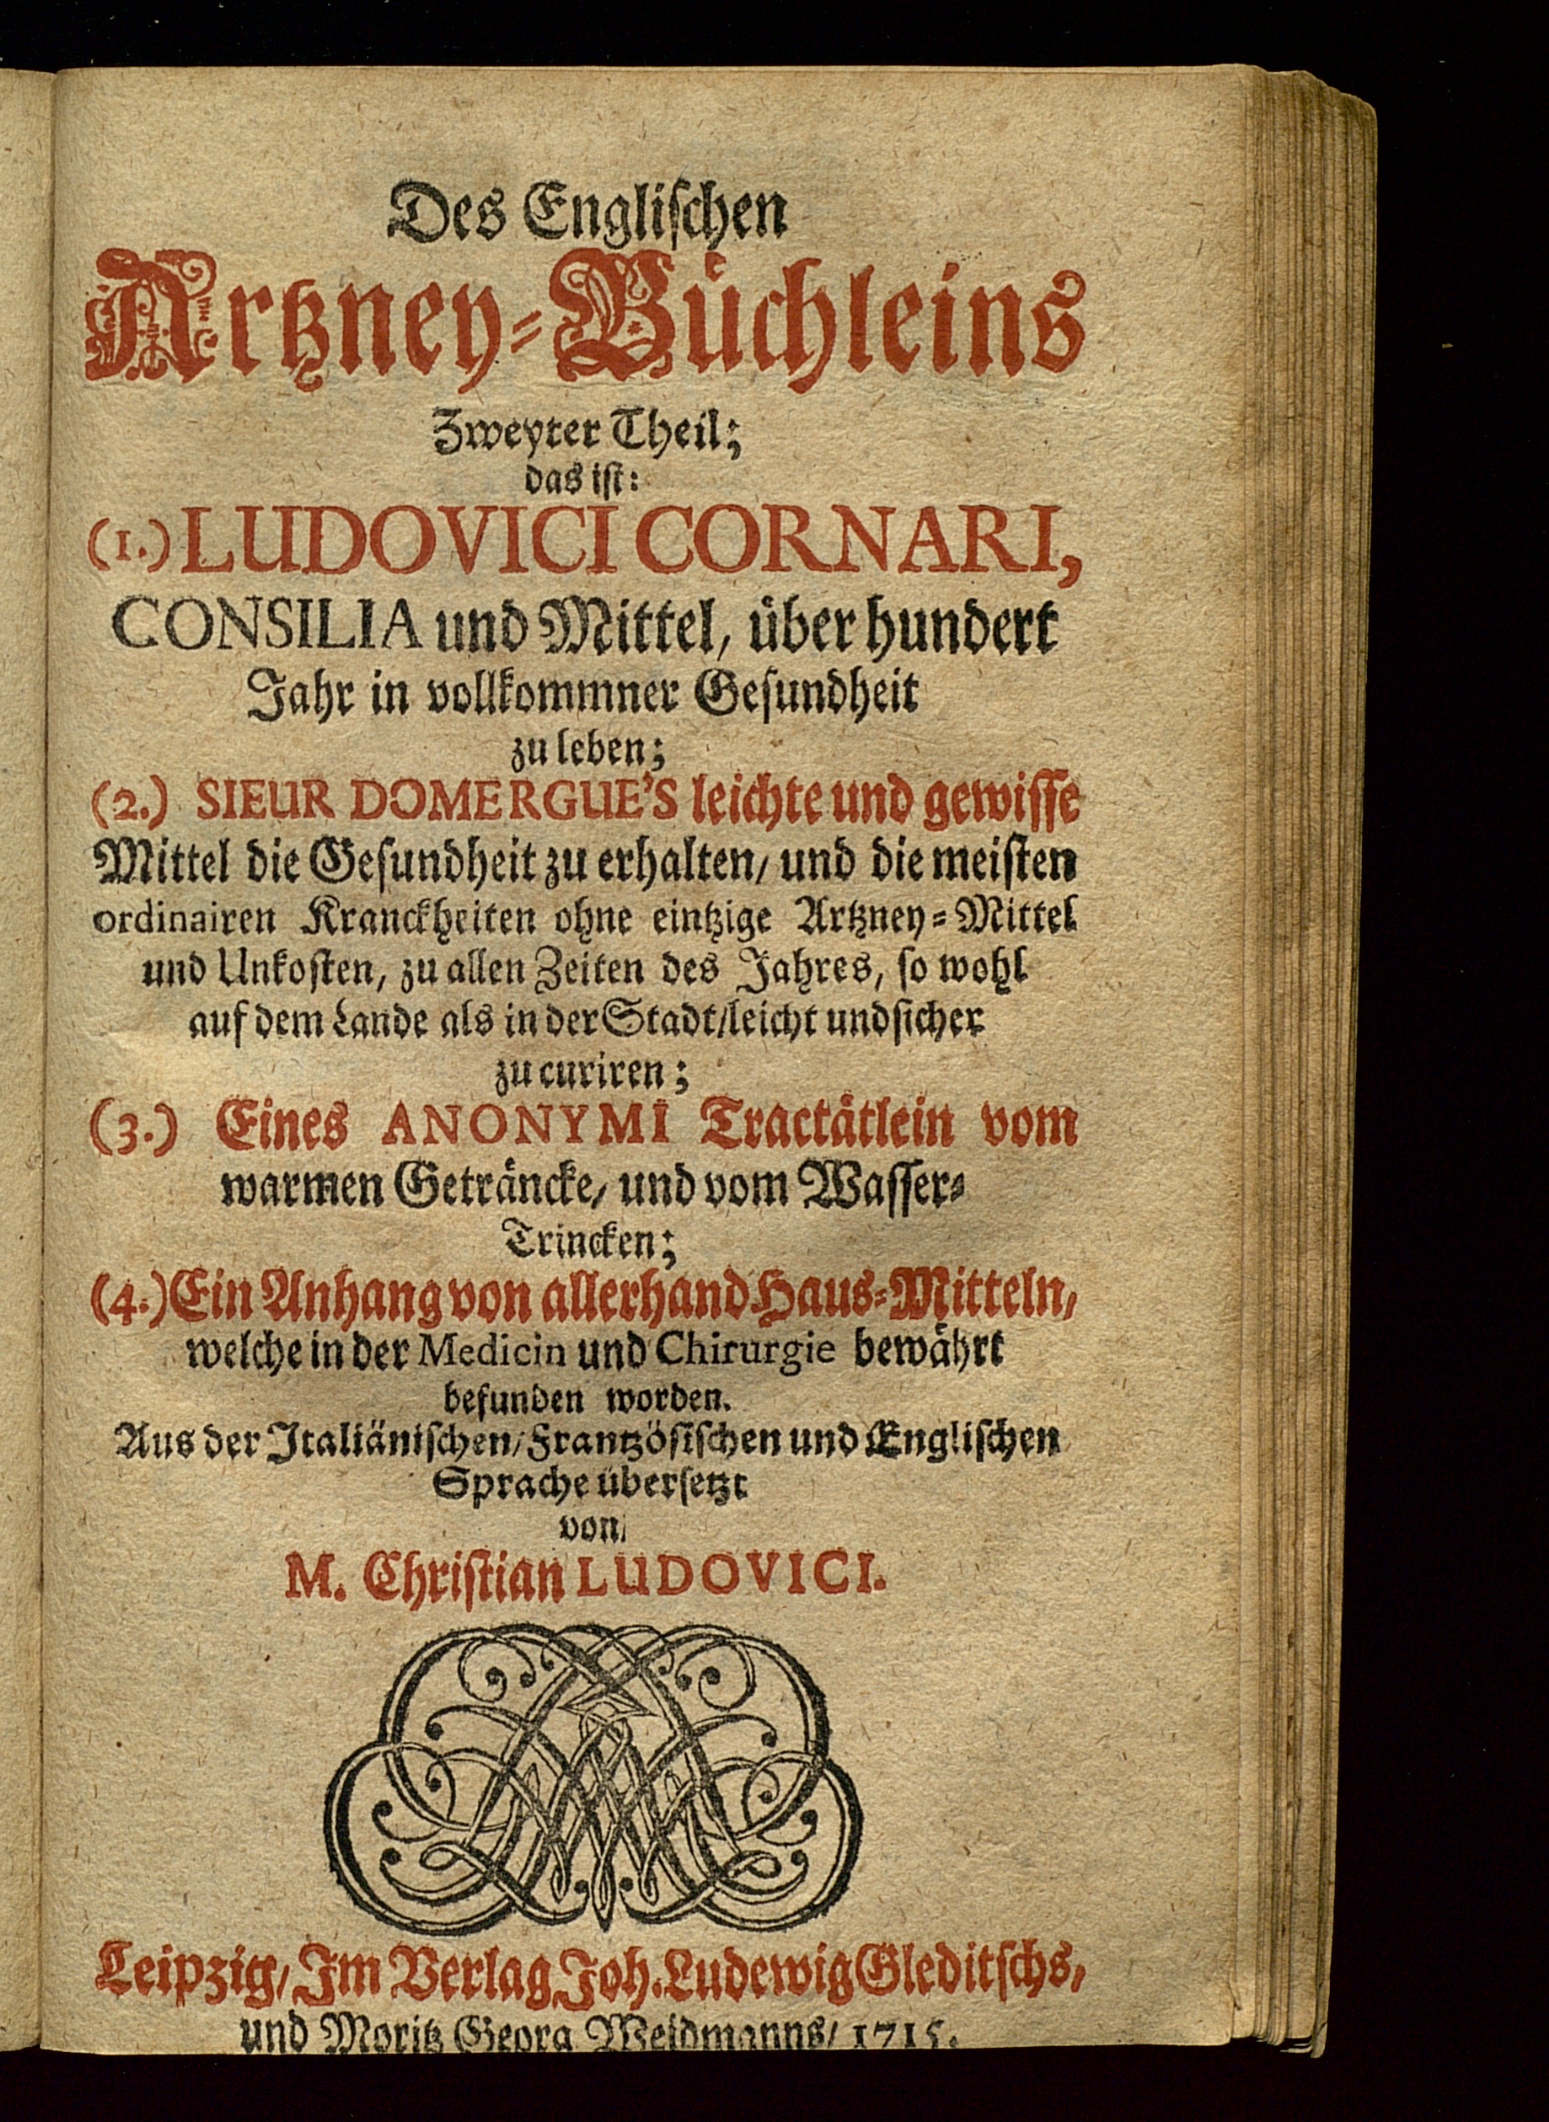 Des Engliſchen
Artzney-Büchleins
Zweyter Theil;
das iſt:
(1.) LUDOVICI CORNARI,
CONSILIA und Mittel, über hundert
Jahr in vollkommner Geſundheit
zu leben;
(2.) SIEUR DOMERGUE'S leichte und gewiſſe
Mittel die Geſundheit zu erhalten/ und die meiſten
ordinairen Kranckheiten ohne eintzige Artzney-Mittel
und Unkoſten, zu allen Zeiten des Jahres, ſo wohl
auf dem Lande als in der Stadt/leicht und ſicher
zu curiren;
(3.) Eines ANONYMI Tractätlein vom
warmen Geträncke/ und vom Waſſer-
Trincken;
(4.) Ein Anhang von allerhand Haus-Mitteln/
welche in der Medicin und Chirurgie bewährt
befunden worden.
Aus der Italiäniſchen/Frantzöſiſchen und Engliſchen
Sprache überſetzt
von
M. Chriſtian LUDOVICI.
Leipzig/ Im Verlag Joh. Ludewig Gleditſchs/
und Moritz Georg Weidmanns/ 1715.